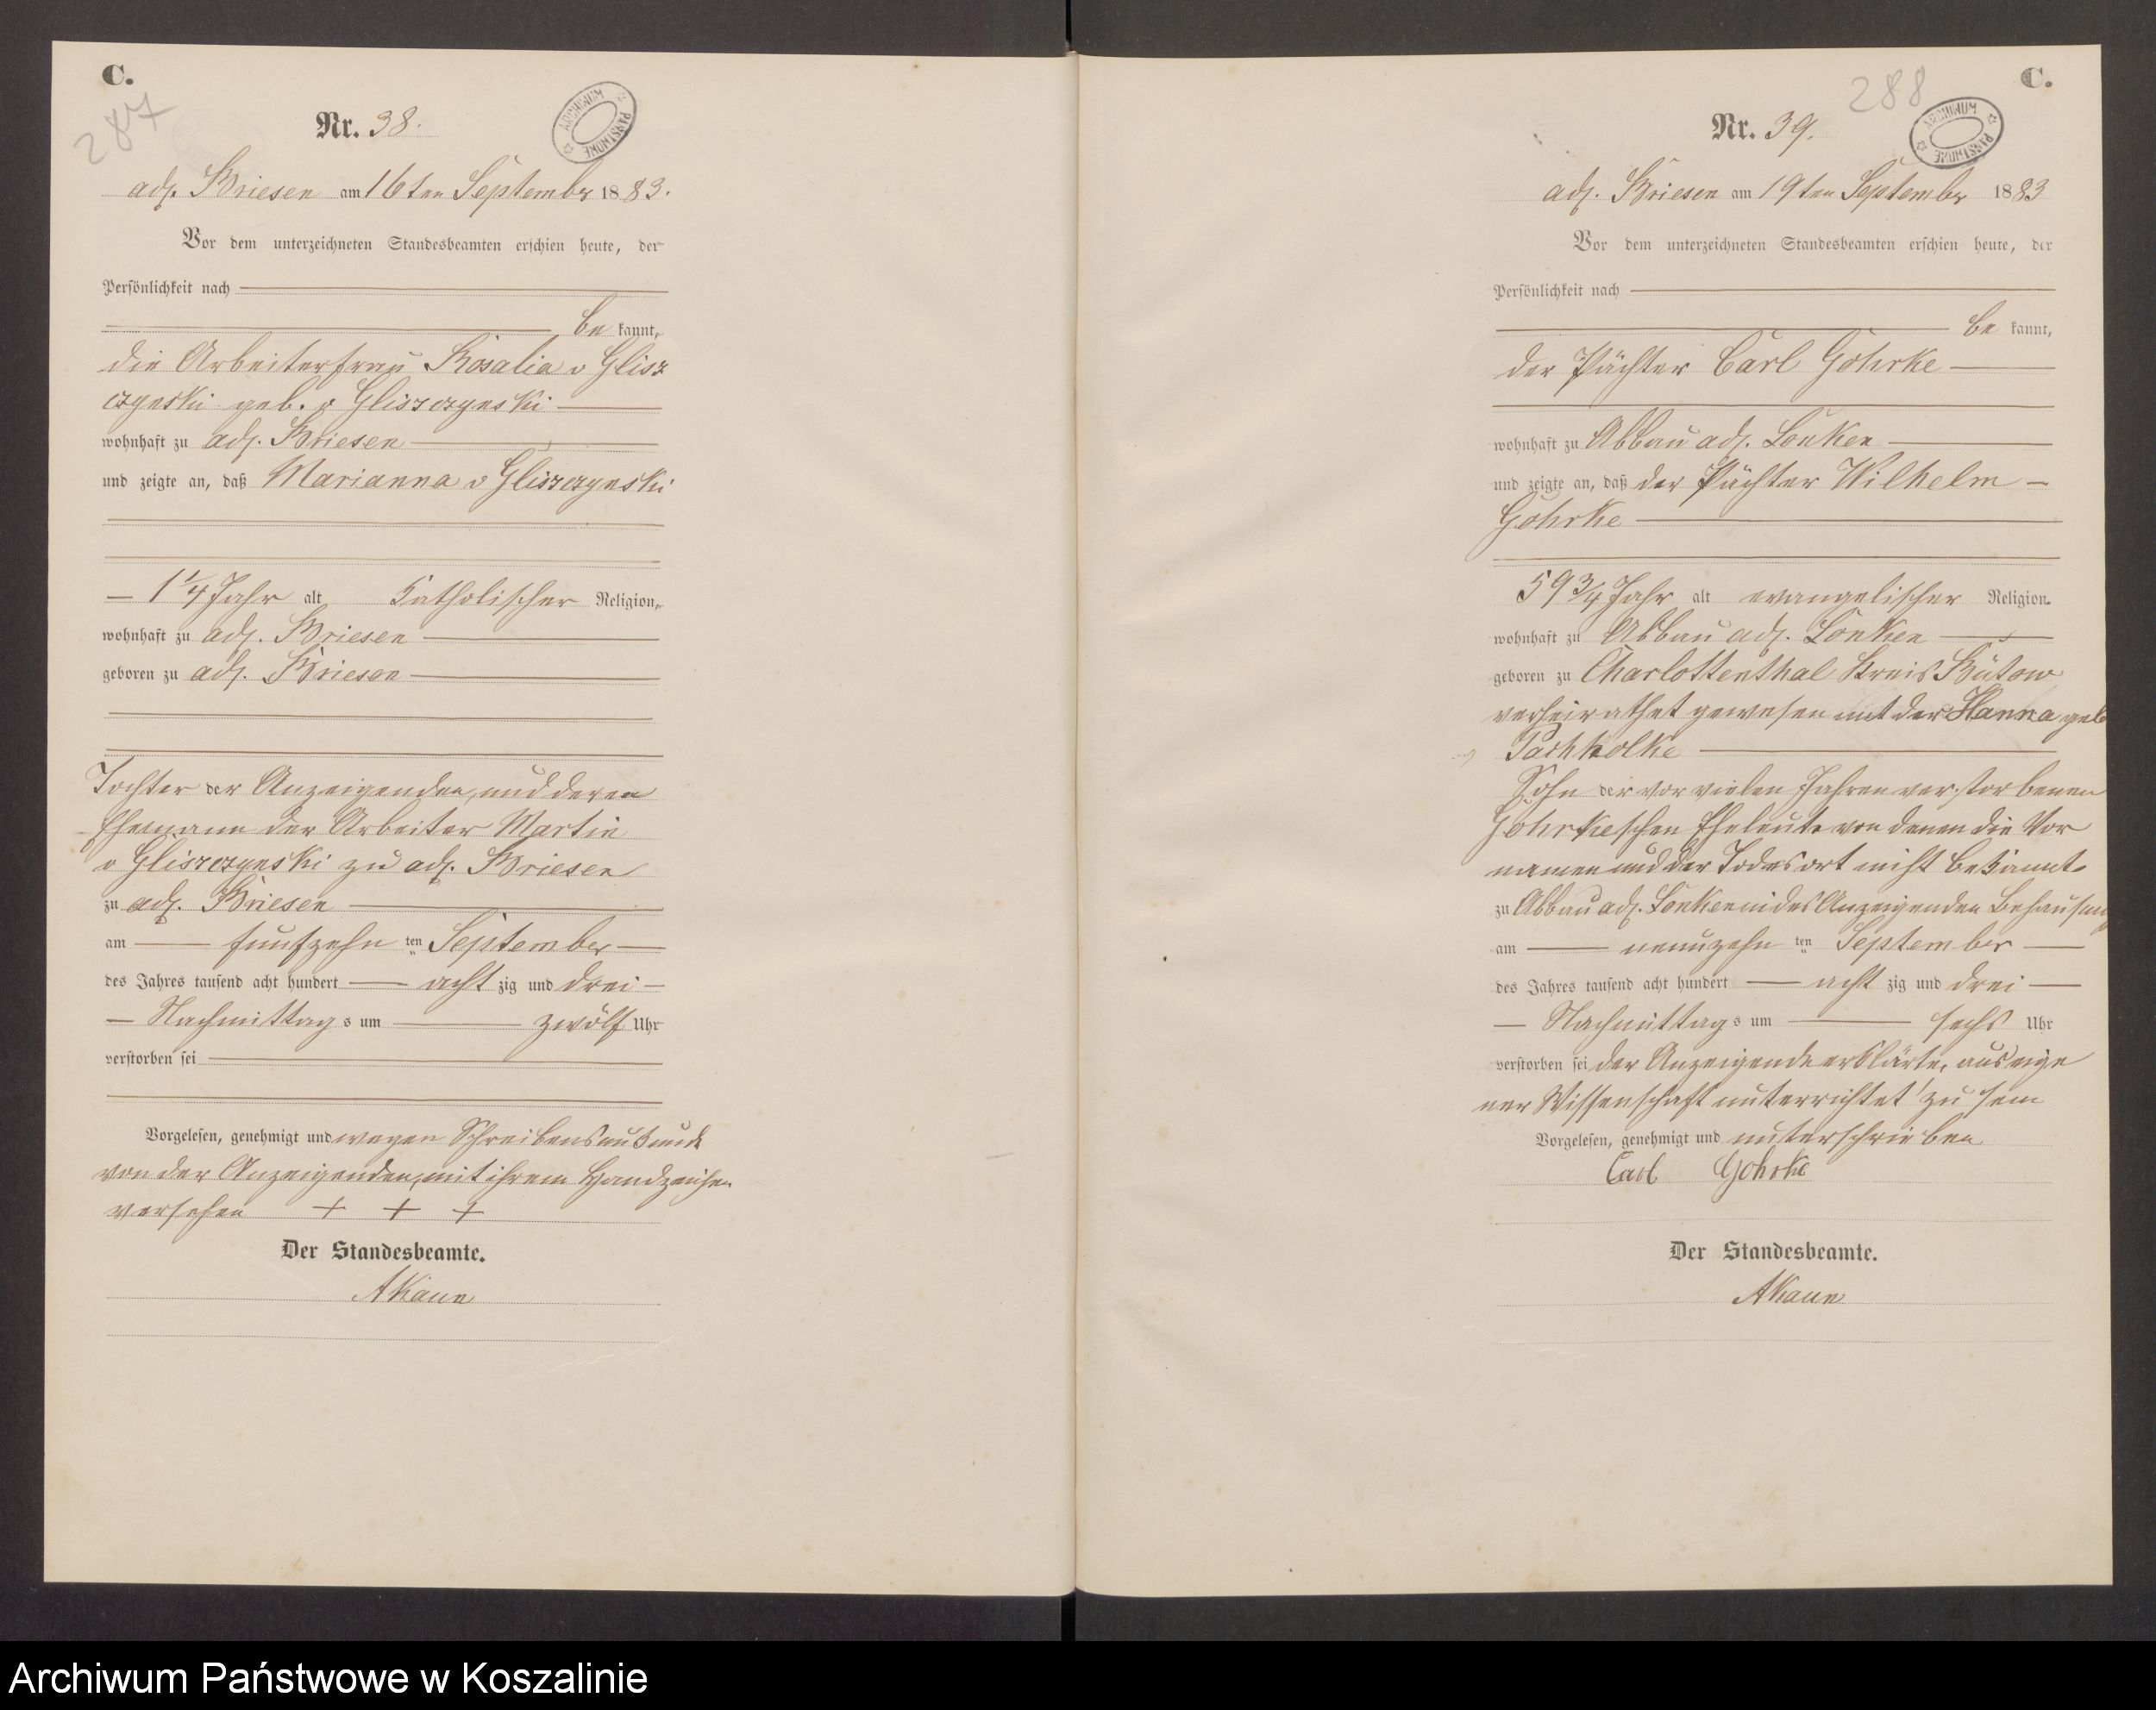 C.
287
Nr. 38.
ARCHIWUM PAŃSTWOWE
adl. Briesen am 16ten September 1883.
Vor dem unterzeichneten Standesbeamten erschien heute, der
Persönlichkeit nach
be kannt,
die Arbeiterfrau Rosalia v Glisz
czynski geb. v Gliszczynski
wohnhaft zu adl. Briesen
und zeigte an, daß Marianna v Gliszczynski
1 1/4 Jahr alt Katholischer Religion,
wohnhaft zu adl. Briesen
geboren zu adl. Briesen
Tochter der Anzeigenden, und deren
Ehemann der Arbeiter Martin
v Gliszczynski zu adl. Briesen
zu adl. Briesen
am fünfzehn ten September
des Jahres tausend acht hundert acht zig und drei
Nachmittag s um zwölf Uhr
verstorben sei
Vorgelesen, genehmigt und wegen Schreibensunkunde
von der Anzeigenden, mit ihrem Handzeichen
versehen + + +
Der Standesbeamte.
AKaun
C.
288
Nr. 39.
ARCHIWUM PAŃSTWOWE
adl. Briesen am 19ten September 1883
Vor dem unterzeichneten Standesbeamten erschien heute, der
Persönlichkeit nach
be kannt,
der Pächter Carl Gohrke
wohnhaft zu Abbau adl. Lonken
und zeigte an, daß der Pächter Wilhelm
Gohrke
59 3/4 Jahr alt evangelischer Religion
wohnhaft zu Abbau adl. Lonken
geboren zu Charlottenthal Kreis Bütow
verheirathet gewesen mit der Hanna geb
Pachholke
Sohn der vor vielen Jahren verstorbenen
Gohrkeschen Eheleute von denen die Vor
namen und der Todesort nicht bekannt
zu Abbau adl. Lonken in des Anzeigenden Behausung
am neunzehn ten September
des Jahres tausend acht hundert acht zig und drei
Nachmittag s um sechs Uhr
verstorben sei der Anzeigende erklärte, aus eige
ner Wissenschaft unterrichtet zu sein
Vorgelesen, genehmigt und unterschrieben
Carl Gohrke
Der Standesbeamte.
AKaun
Archiwum Państwowe w Koszalinie